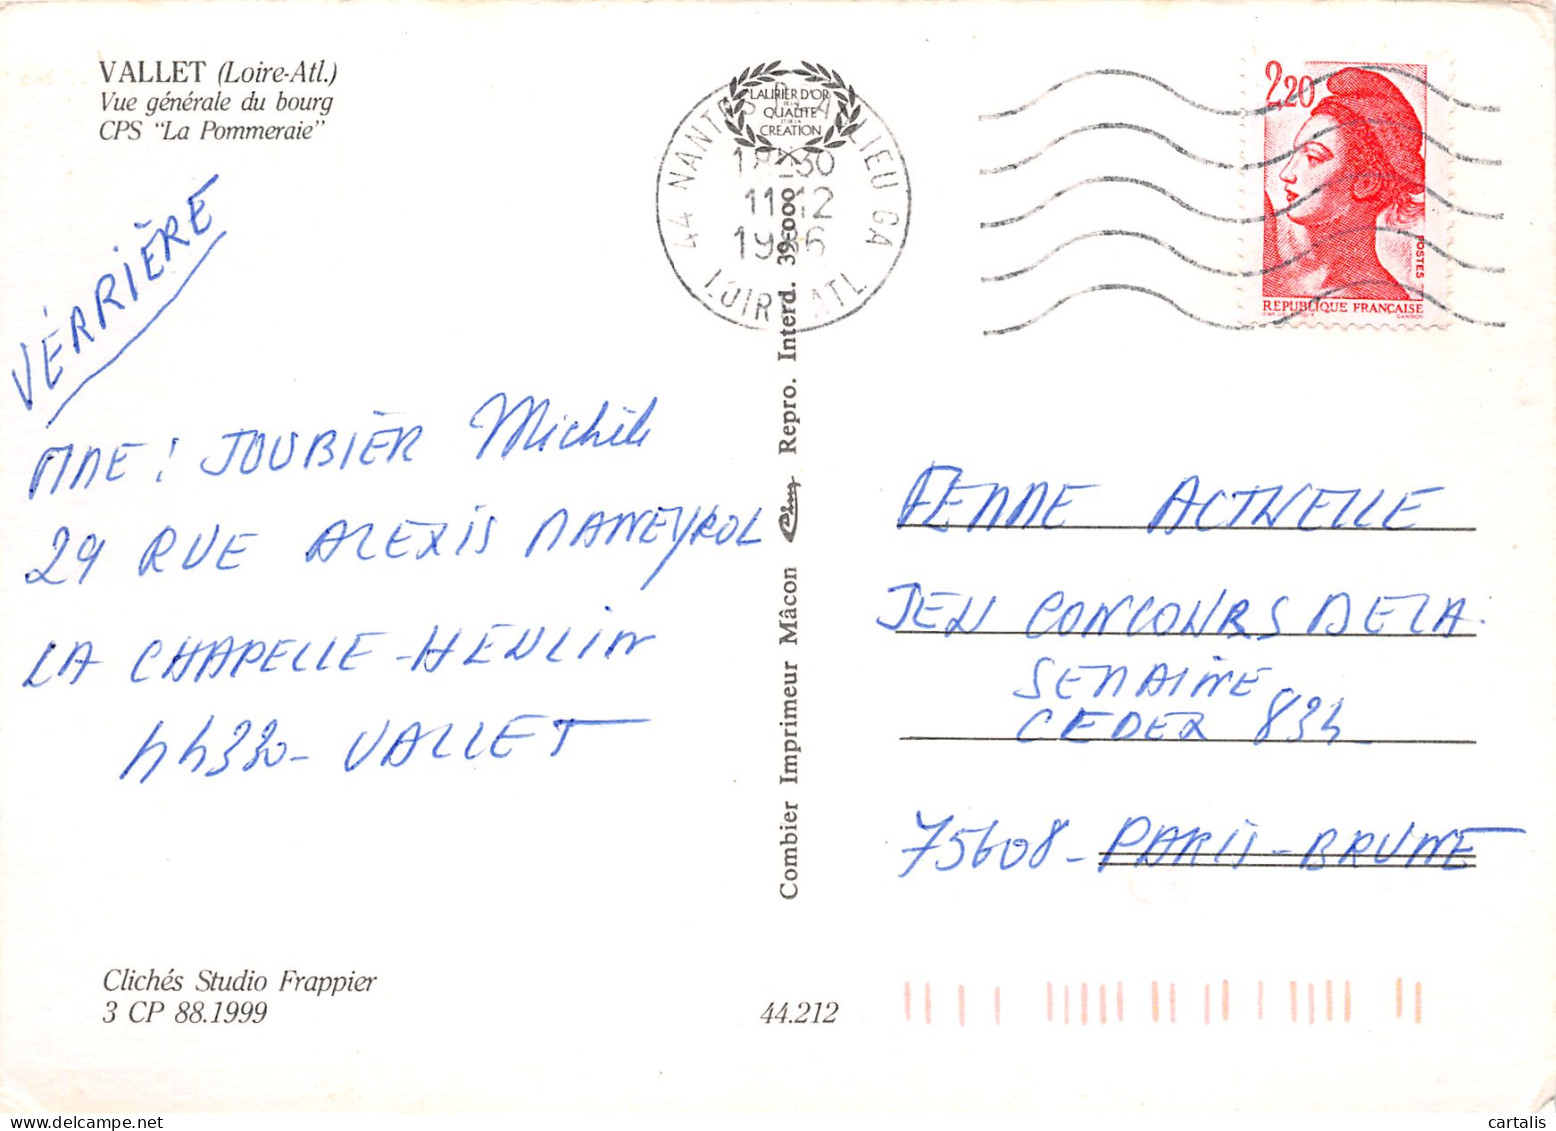 VALLET (Loire-Atl.)
Vue générale du bourg
CPS "La Pommeraie"
VÉRRIÈRE
MME : JOUBIER Michèle
29 RUE ALEXIS MANEYROL
LA CHAPELLE-HEULIN
44330- VALLET
Clichés Studio Frappier
3 CP 88.1999
44.212
LAURIER D'OR
DE LA
QUALITÉ
ET DE LA
CRÉATION
Combier Imprimeur Mâcon Repro. Interd. 39-000
44 NANTES LIEU GA
LOIRE ATL
11 12
2,20
POSTES
REPUBLIQUE FRANÇAISE
GANDON
FEMME ACTUELLE
JEU CONCOURS DE LA
SEMAINE
CEDEX 834
75608- PARIS-BRUNE
cartalis